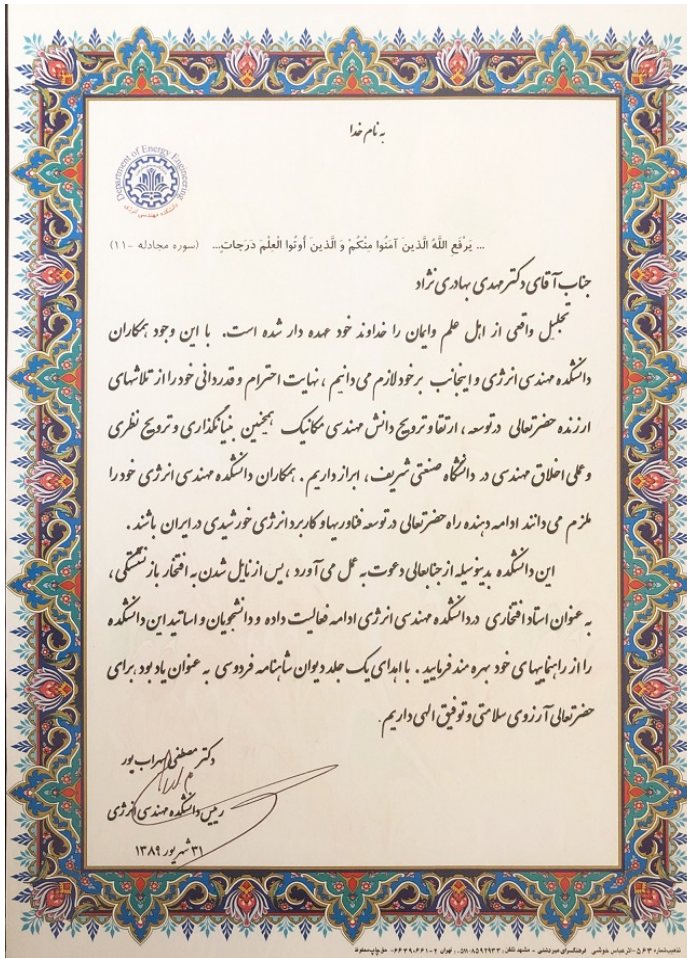 به نام خدا
Department of Energy Engineering
دانشکده مهندسی انرژی
... یَرْفَعِ اللَّهُ الَّذینَ آمَنُوا مِنْکُمْ وَ الَّذینَ أُوتُوا الْعِلْمَ دَرَجاتٍ... (سوره مجادله -۱۱)
جناب آقای دکتر مهدی بهادری نژاد
تجلیل واقعی از اهل علم و ایمان را خداوند خود عهده دار شده است. با این وجود همکاران
دانشکده مهندسی انرژی و اینجانب بر خود لازم می دانیم ، نهایت احترام و قدردانی خود را از تلاشهای
ارزنده حضرتعالی در توسعه ، ارتقا و ترویج دانش مهندسی مکانیک همچنین بنیانگذاری و ترویج نظری
و عملی اخلاق مهندسی در دانشگاه صنعتی شریف، ابراز داریم . همکاران دانشکده مهندسی انرژی خود را
ملزم می دانند ادامه دهنده راه حضرتعالی در توسعه فناوریها و کاربرد انرژی خورشیدی در ایران باشند .
این دانشکده بدینوسیله از جنابعالی دعوت به عمل می آورد ، پس از نایل شدن به افتخار بازنشستگی ،
به عنوان استاد افتخاری در دانشکده مهندسی انرژی ادامه فعالیت داده و دانشجویان و اساتید این دانشکده
را از راهنماییهای خود بهره مند فرمایید . با اهدای یک جلد دیوان شاهنامه فردوسی به عنوان یادبود برای
حضرتعالی آرزوی سلامتی و توفیق الهی داریم.
دکتر مصطفی سهراب پور
رییس دانشکده مهندسی انرژی
۳۱ شهریور ۱۳۸۹
تذهیب شماره ۵۶۳ -اثر عباس خوشی فرهنگسرای میردشتی - مشهد تلفن : ۸۵۹۲۹۳۳-۰۵۱۱ ، تهران ۲-۶۶۴۹۰۶۶۱- حق چاپ محفوظ